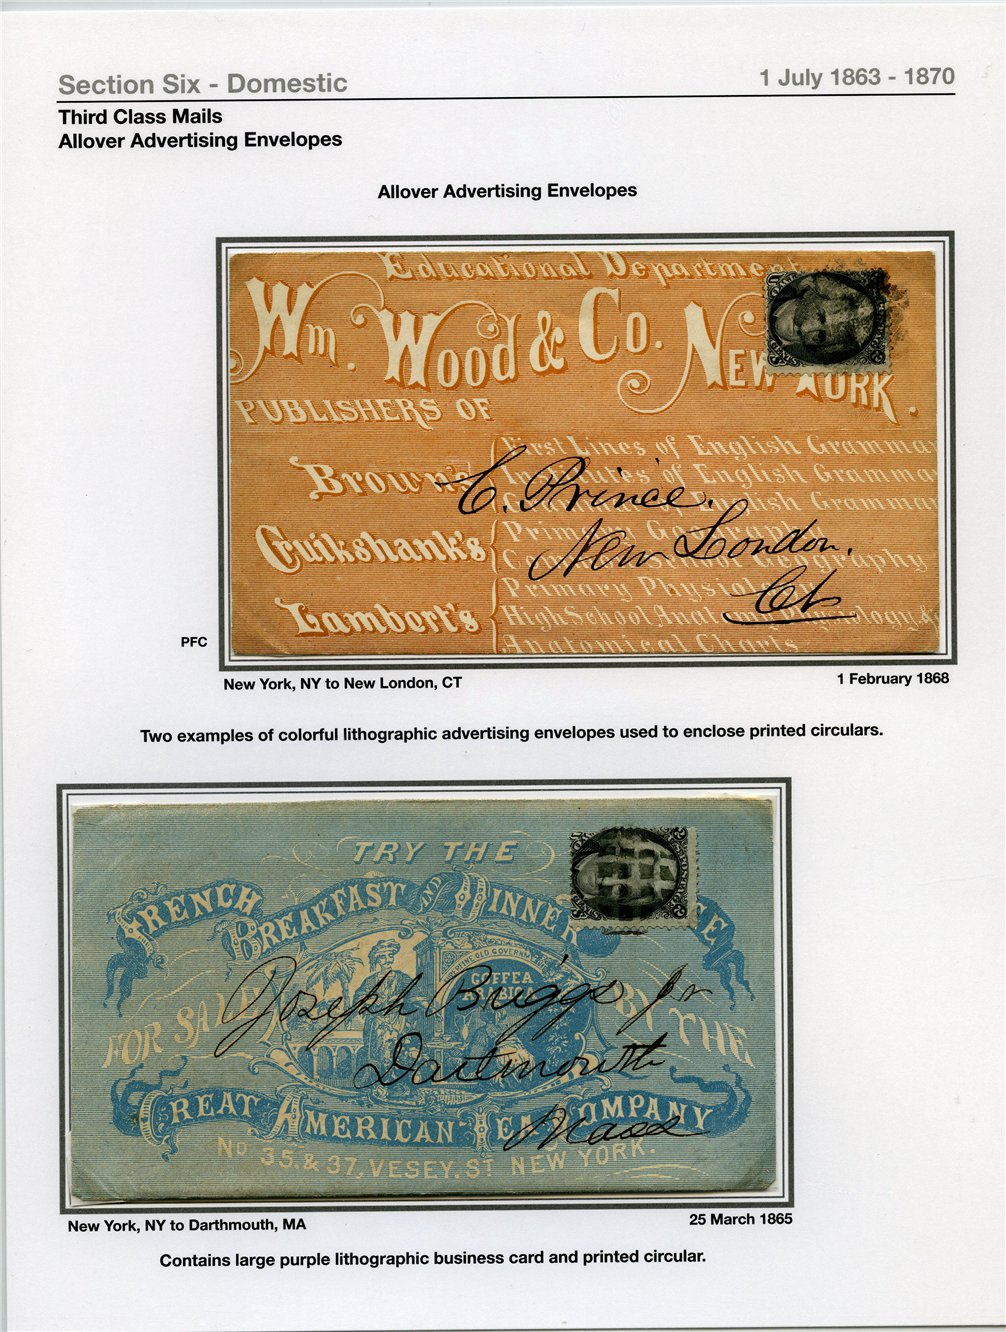 Section Six - Domestic
1 July 1863 - 1870
Third Class Mails
Allover Advertising Envelopes
Allover Advertising Envelopes
Educational Departme
Wm. Wood & Co. New York.
PUBLISHERS OF
First Lines of English Grammar
Brown's Institutes of English Gramma
of English Gramma
C. Prince.
Cruikshank's Primary Geography
School Geography
New London,
Ct
Primary Physiology
Lambert's High School Anatomy Physiology, &
Anatomical Charts
PFC
New York, NY to New London, CT
1 February 1868
Two examples of colorful lithographic advertising envelopes used to enclose printed circulars.
TRY THE
FRENCH BREAKFAST AND DINNER
FOR SALE BY THE
COFFEA ARABICA
Joseph Briggs Jr
Dartmouth
Mass
GREAT AMERICAN TEA COMPANY
No 35. & 37, VESEY. ST NEW YORK.
New York, NY to Darthmouth, MA
25 March 1865
Contains large purple lithographic business card and printed circular.